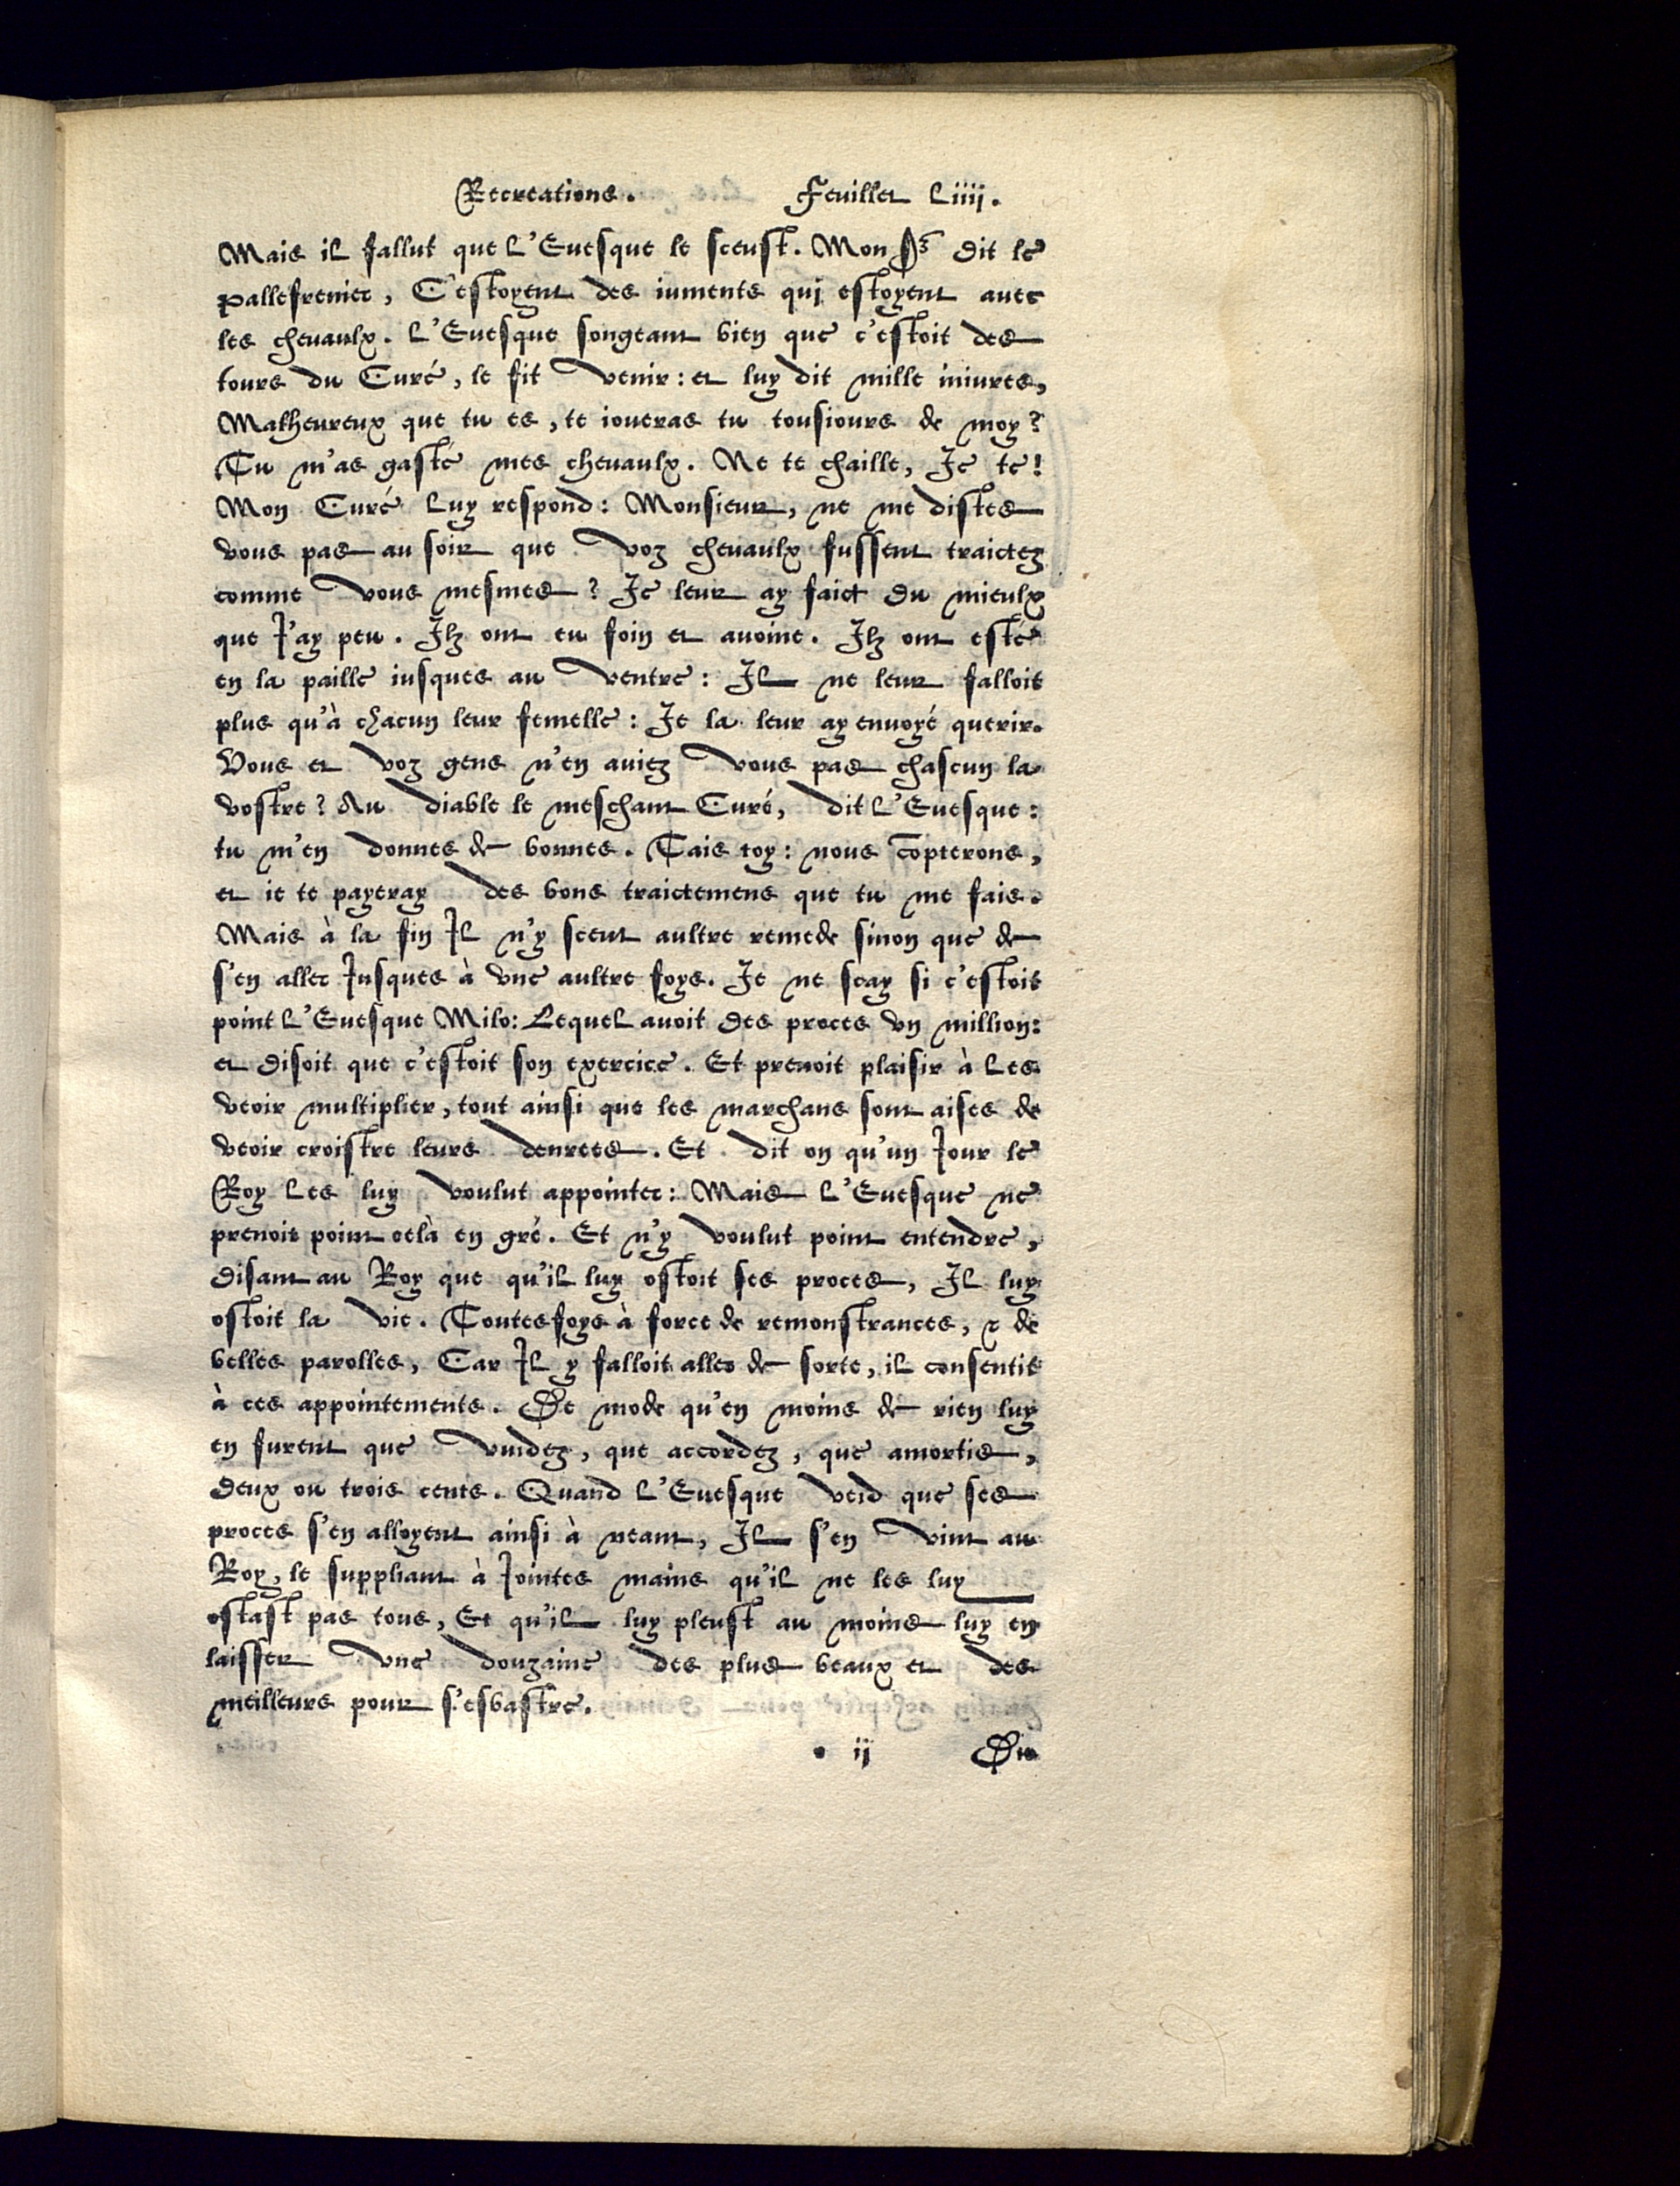 Recreations. Feuillet Liiij.
Mais il fallut que l'Euesque le sceust. Mon Sʳ dit le
pallefrenier, C'estoyent des iuments qui estoyent auec
les cheuaulx. L'Euesque songeant bien que c'estoit des
tours du Curé, le fit venir: et luy dit mille iniures,
Malheureux que tu es, te ioueras tu tousiours de moy?
Tu m'as gasté mes cheuaulx. Ne te chaille, Je te!
Mon Curé luy respond: Monsieur, ne me distes
vous pas au soir que voz cheuaulx fussent traictez
comme vous mesmes? Je leur ay faict du mieulx
que J'ay peu. Ilz ont eu foin et auoine. Ilz ont esté
en la paille iusques au ventre: Il ne leur falloit
plus qu'à chacun leur femelle: Je la leur ay enuoyé querir.
Vous et voz gens n'en auiez vous pas chascun la
vostre? Au diable le meschant Curé, dit l'Euesque:
tu m'en donnes de bonnes. Tais toy: nous cōpterons,
et ie te payeray des bons traictemens que tu me fais.
Mais à la fin Il n'y sceut aultre remede sinon que de
s'en aller Jusques à vne aultre foys. Je ne scay si c'estoit
point l'Euesque Milo: Lequel auoit des proces vn million:
et disoit que c'estoit son exercice. Et prenoit plaisir à les
veoir multiplier, tout ainsi que les marchans sont aises de
veoir croistre leurs denrees. Et dit on qu'un Jour le
Roy les luy voulut appointer: Mais l'Euesque ne
prenoit point celà en gré. Et n'y voulut point entendre,
disant au Roy que qu'il luy ostoit ses proces, Il luy
ostoit la vie. Toutesfoys à force de remonstrances, & de
belles parolles, Car Il y falloit aller de sorte, il consentit
à ces appointements. De mode qu'en moins de rien luy
en furent que vuidez, que accordez, que amortis,
deux ou trois cents. Quand l'Euesque veid que ses
proces s'en alloyent ainsi à neant, Il s'en vint au
Roy, le suppliant à Jointes mains qu'il ne les luy
ostast pas tous, Et qu'il luy pleust au moins luy en
laisser vne douzaine des plus beaux et des
meilleurs pour s'esbastre.
o ij Du